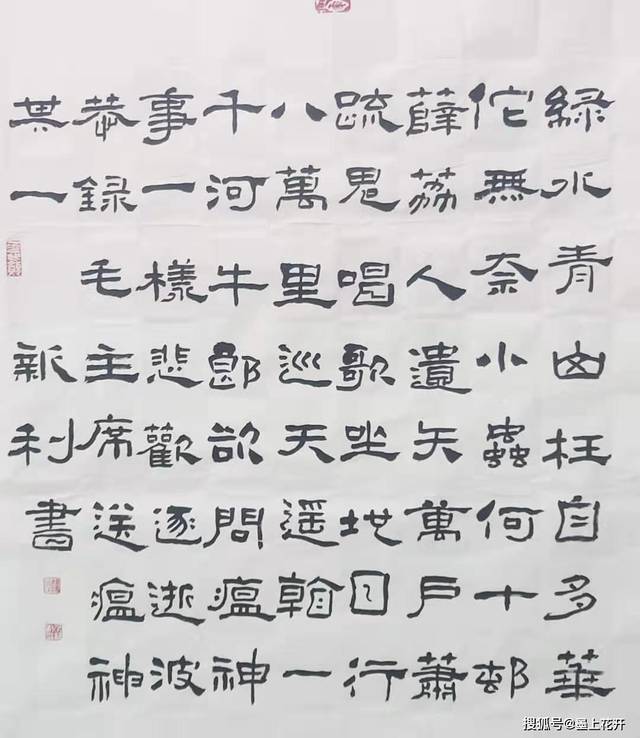 緑水青山枉自多華
佗無奈小蟲何千邨
薜荔人遺矢萬戶蕭
疏鬼唱歌坐地日行
八萬里巡天遥看一
千河牛郎欲問瘟神
事一樣悲歡逐逝波
恭録毛主席送瘟神
其一 新利書
搜狐号@墨上花开